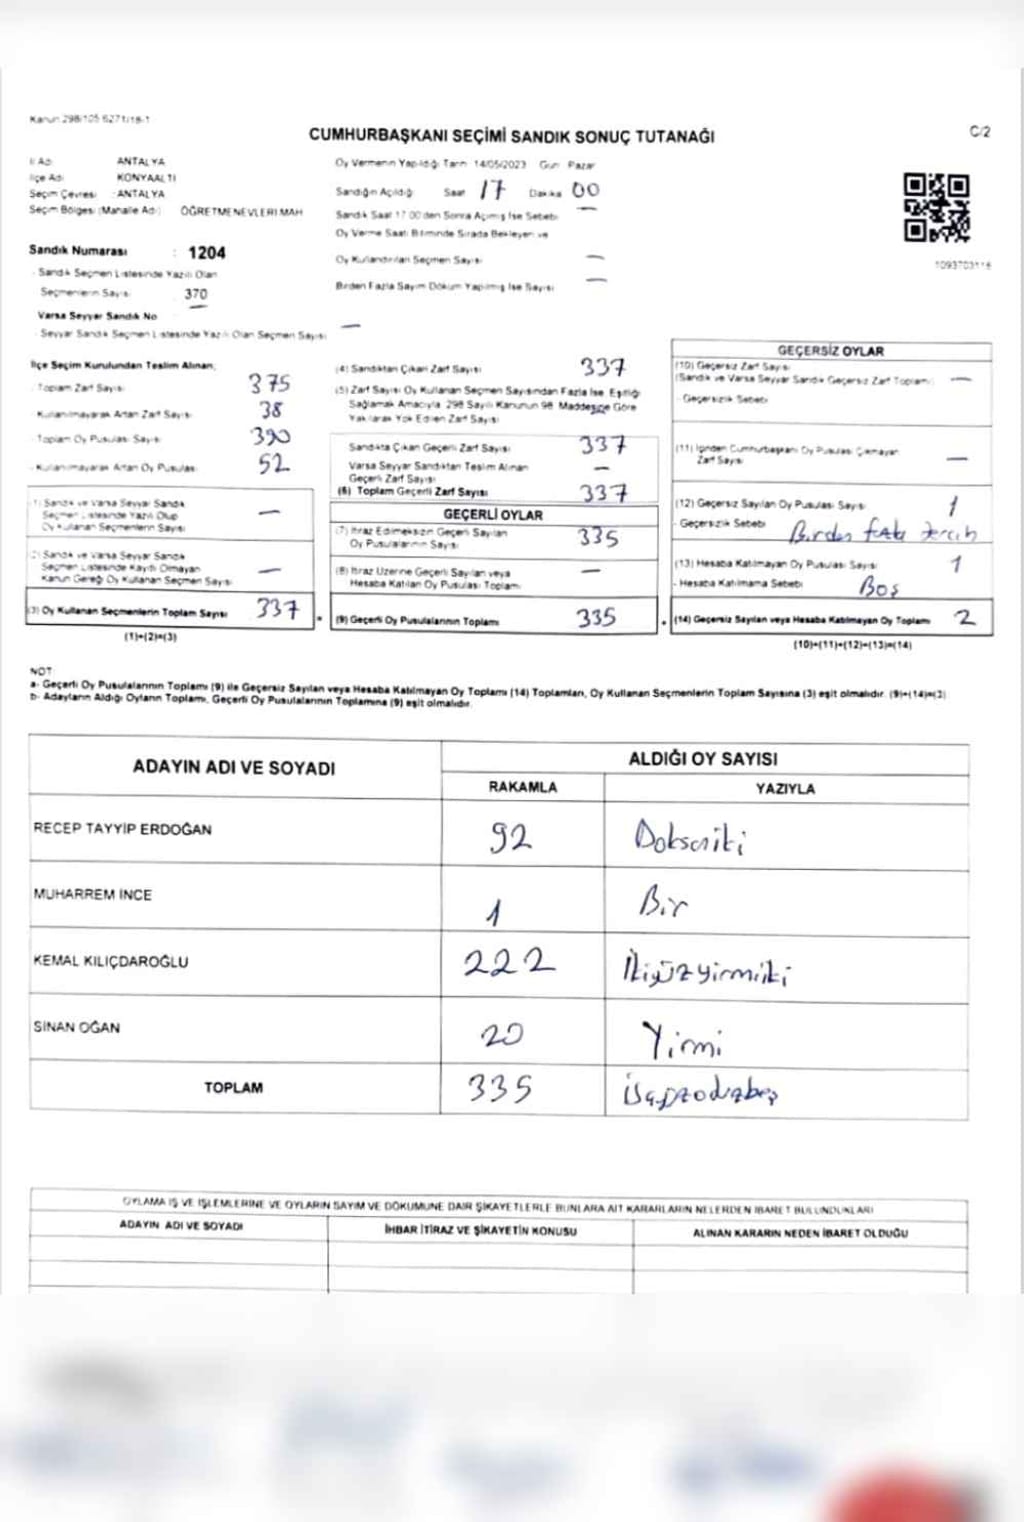 Kanun 298/105 6271/18-1
CUMHURBAŞKANI SEÇİMİ SANDIK SONUÇ TUTANAĞI
C/2
İl Adı ANTALYA
İlçe Adı KONYAALTI
Seçim Çevresi : ANTALYA
Seçim Bölgesi (Mahalle Adı) ÖĞRETMENEVLERİ MAH
Sandık Numarası : 1204
- Sandık Seçmen Listesinde Yazılı Olan
Seçmenlerin Sayısı 370
Varsa Seyyar Sandık No —
- Seyyar Sandık Seçmen Listesinde Yazılı Olan Seçmen Sayısı —
Oy Vermenin Yapıldığı Tarih 14/05/2023 Gün Pazar
Sandığın Açıldığı Saat 17 Dakika 00
Sandık Saat 17.00'den Sonra Açılmış İse Sebebi —
Oy Verme Saati Bitiminde Sırada Bekleyen ve
Oy Kullandırılan Seçmen Sayısı —
Birden Fazla Sayım Döküm Yapılmış İse Sayısı —
1093703116
İlçe Seçim Kurulundan Teslim Alınan;
- Toplam Zarf Sayısı 375
- Kullanılmayarak Artan Zarf Sayısı 38
- Toplam Oy Pusulası Sayısı 390
- Kullanılmayarak Artan Oy Pusulası 52
(1) Sandık ve Varsa Seyyar Sandık
Seçmen Listesinde Yazılı Olup
Oy Kullanan Seçmenlerin Sayısı —
(2) Sandık ve Varsa Seyyar Sandık
Seçmen Listesinde Kayıtlı Olmayan
Kanun Gereği Oy Kullanan Seçmen Sayısı —
(3) Oy Kullanan Seçmenlerin Toplam Sayısı 337
(1)+(2)=(3)
(4) Sandıktan Çıkan Zarf Sayısı 337
(5) Zarf Sayısı Oy Kullanan Seçmen Sayısından Fazla İse, Eşitliği
Sağlamak Amacıyla 298 Sayılı Kanunun 98. Maddesine Göre
Yakılarak Yok Edilen Zarf Sayısı —
Sandıkta Çıkan Geçerli Zarf Sayısı 337
Varsa Seyyar Sandıktan Teslim Alınan
Geçerli Zarf Sayısı —
(6) Toplam Geçerli Zarf Sayısı 337
GEÇERLİ OYLAR
(7) İtiraz Edilmeksizin Geçerli Sayılan
Oy Pusulalarının Sayısı 335
(8) İtiraz Üzerine Geçerli Sayılan veya
Hesaba Katılan Oy Pusulası Toplamı —
(9) Geçerli Oy Pusulalarının Toplamı 335
GEÇERSİZ OYLAR
(10) Geçersiz Zarf Sayısı
(Sandık ve Varsa Seyyar Sandık Geçersiz Zarf Toplamı) —
- Geçersizlik Sebebi
(11) İçinden Cumhurbaşkanı Oy Pusulası Çıkmayan
Zarf Sayısı —
(12) Geçersiz Sayılan Oy Pusulası Sayısı 1
- Geçersizlik Sebebi Birden fazla tercih
(13) Hesaba Katılmayan Oy Pusulası Sayısı 1
- Hesaba Katılmama Sebebi Boş
(14) Geçersiz Sayılan veya Hesaba Katılmayan Oy Toplamı 2
(10)+(11)+(12)+(13)=(14)
NOT:
a- Geçerli Oy Pusulalarının Toplamı (9) ile Geçersiz Sayılan veya Hesaba Katılmayan Oy Toplamı (14) Toplamları, Oy Kullanan Seçmenlerin Toplam Sayısına (3) eşit olmalıdır. (9)+(14)=(3)
b- Adayların Aldığı Oyların Toplamı, Geçerli Oy Pusulalarının Toplamına (9) eşit olmalıdır.
ADAYIN ADI VE SOYADI ALDIĞI OY SAYISI
RAKAMLA YAZIYLA
RECEP TAYYİP ERDOĞAN 92 Doksaniki
MUHARREM İNCE 1 Bir
KEMAL KILIÇDAROĞLU 222 İkiyüzyirmiiki
SİNAN OĞAN 20 Yirmi
TOPLAM 335
OYLAMA İŞ VE İŞLEMLERİNE VE OYLARIN SAYIM VE DÖKÜMÜNE DAİR ŞİKAYETLERLE BUNLARA AİT KARARLARIN NELERDEN İBARET BULUNDUKLARI
ADAYIN ADI VE SOYADI İHBAR İTİRAZ VE ŞİKAYETİN KONUSU ALINAN KARARIN NEDEN İBARET OLDUĞU